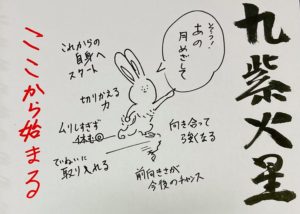 九紫火星
そーっ！
あの
月めざして
これからの
自身へ
スタート
切りかえる
力
ムリしすぎず
休む
ていねいに
取り入れる
向き合って
強くなる
前向きさが
今後のチャンス
ここから始まる